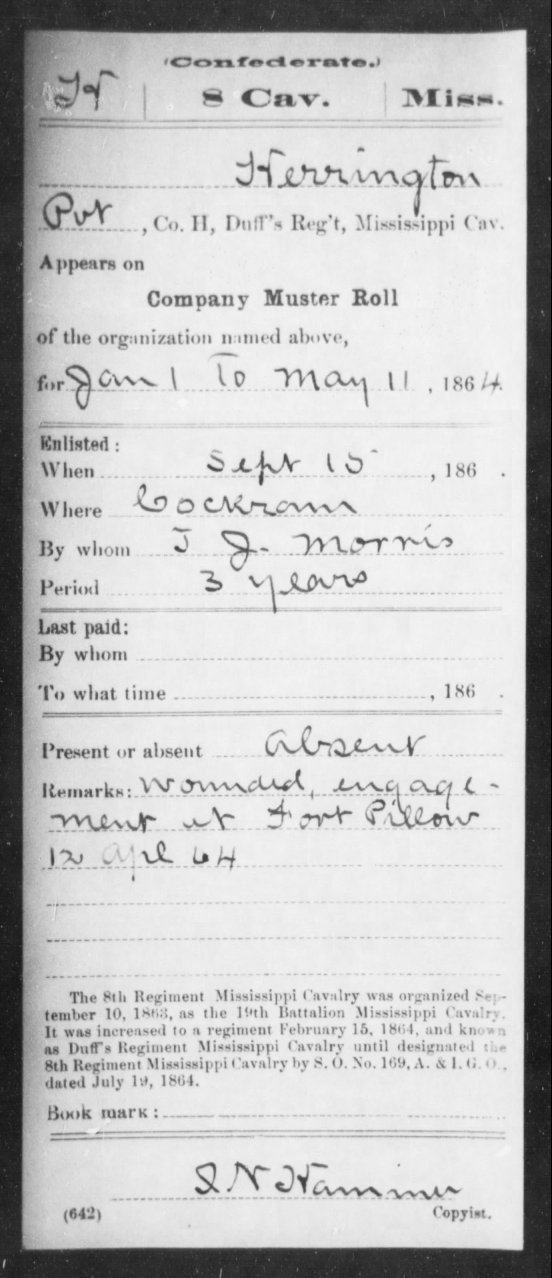 (Confederate.)
H | 8 Cav. | Miss.
Herrington
Pvt, Co. H, Duff's Reg't, Mississippi Cav.
Appears on
Company Muster Roll
of the organization named above,
for Jan 1 To May 11, 1864.
Enlisted:
When Sept 15, 186 .
Where Cockram
By whom T J. Morris
Period 3 years
Last paid:
By whom
To what time , 186 .
Present or absent Absent
Remarks: Wounded, engage-
ment at Fort Pillow
12 Apl 64
The 8th Regiment Mississippi Cavalry was organized Sep-
tember 10, 1863, as the 19th Battalion Mississippi Cavalry.
It was increased to a regiment February 15, 1864, and known
as Duff's Regiment Mississippi Cavalry until designated the
8th Regiment Mississippi Cavalry by S. O. No. 169, A. & I. G. O.,
dated July 19, 1864.
Book mark:
I N Hammer
(642) Copyist.